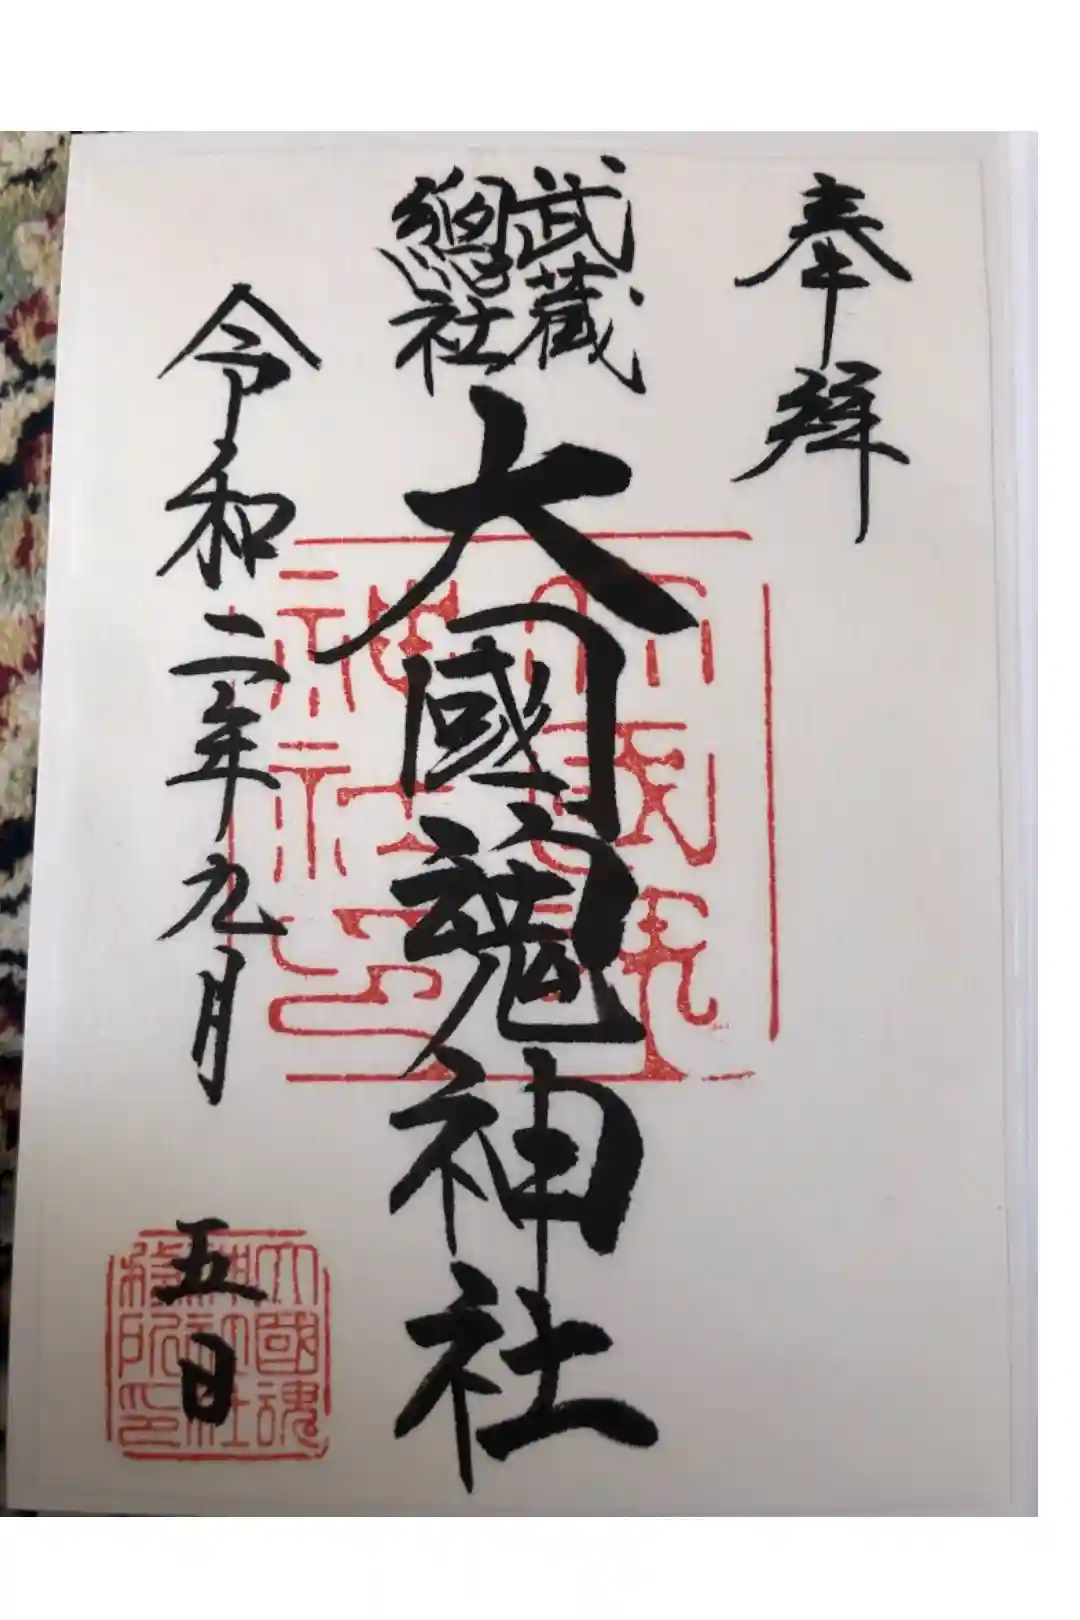 奉拝
武蔵
總社
大國魂神社
令和二年九月五日
大國魂
神社印
大國魂
神社社
務所印